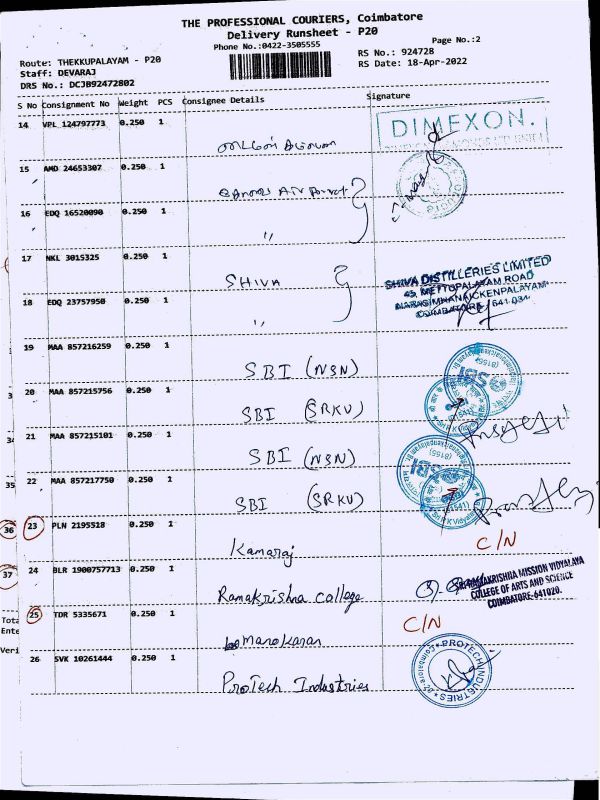 THE PROFESSIONAL COURIERS, Coimbatore
Delivery Runsheet - P20
Phone No.:0422-3505555
Page No.:2
Route: THEKKUPALAYAM - P20
RS No.: 924728
Staff: DEVARAJ
RS Date: 18-Apr-2022
DRS No.: DCJB92472802
S No Consignment No Weight PCS Consignee Details Signature
14 VPL 124797773 0.250 1
DIMEXON.
15 AMD 24653307 0.250 1
16 EDQ 16520090 0.250 1
"
17 NKL 3015325 0.250 1
SHIVA
SHIVA DISTILLERIES LIMITED
45, METTUPALAYAM ROAD
NARASIMHANAICKENPALAYAM
COIMBATORE / 641 031
18 EDQ 23757950 0.250 1
"
19 MAA 857216259 0.250 1
SBI (NSN)
SBI
20 MAA 857215756 0.250 1
SBI (SRKV)
21 MAA 857215101 0.250 1
SBI (NSN)
SBI
22 MAA 857217750 0.250 1
35
SBI (SRKV)
36 23 PLN 2195528 0.250 1
Kamaraj C/N
37 24 BLR 1900757713 0.250 1
Ramakrishna College
RAMAKRISHNA MISSION VIDYALAYA
COLLEGE OF ARTS AND SCIENCE
COIMBATORE-641020.
25 TDR 5335671 0.250 1
C/N
Manokaran
26 SVK 10261444 0.250 1
ProTech Industries
PROTECH INDUSTRIES
Tota
Ente
Veri